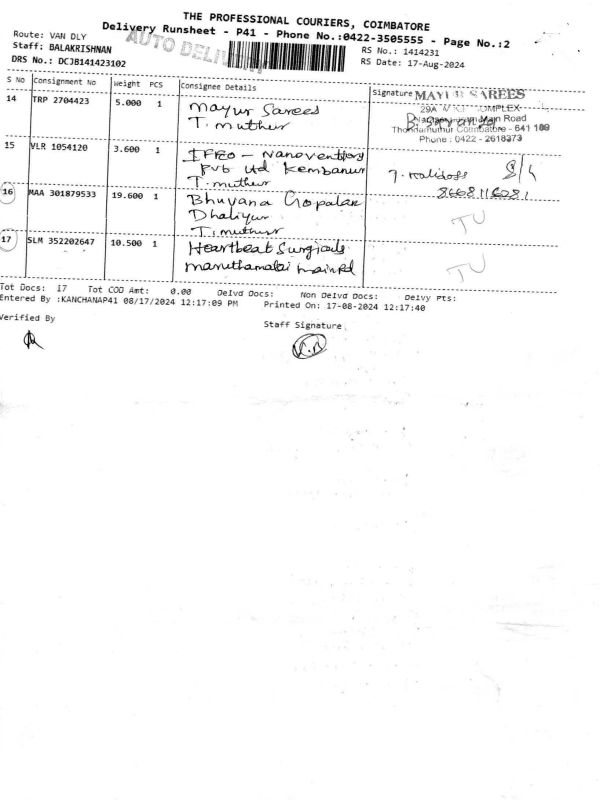 THE PROFESSIONAL COURIERS, COIMBATORE
Delivery Runsheet - P41 - Phone No.:0422-3505555 - Page No.:2
Route: VAN DLY
AUTO DELIVERY
RS No.: 1414231
Staff: BALAKRISHNAN
RS Date: 17-Aug-2024
DRS No.: DCJB141423102
S No Consignment No Weight PCS Consignee Details Signature
14 TRP 2704423 5.000 1 Mayur Sarees
T. muthur
MAYUR SAREES
COMPLEX
Main Road
Coimbatore - 641 109
Phone : 0422 - 2618373
15 VLR 1054120 3.600 1 IFFCO - Nanoventions
Pvt Ltd Kembanur
T. muthur
8668116081
16 MAA 301879533 19.600 1 Bhuvana Gopalan
Dhaliyur
T. muthur
TU
17 SLM 352202647 10.500 1 Heartbeat Surgicals
maruthamalai main Rd
TU
Tot Docs: 17 Tot COD Amt: 0.00 Delvd Docs: Non Delvd Docs: Delvy Pts:
Entered By :KANCHANAP41 08/17/2024 12:17:09 PM Printed On: 17-08-2024 12:17:40
Verified By
Staff Signature